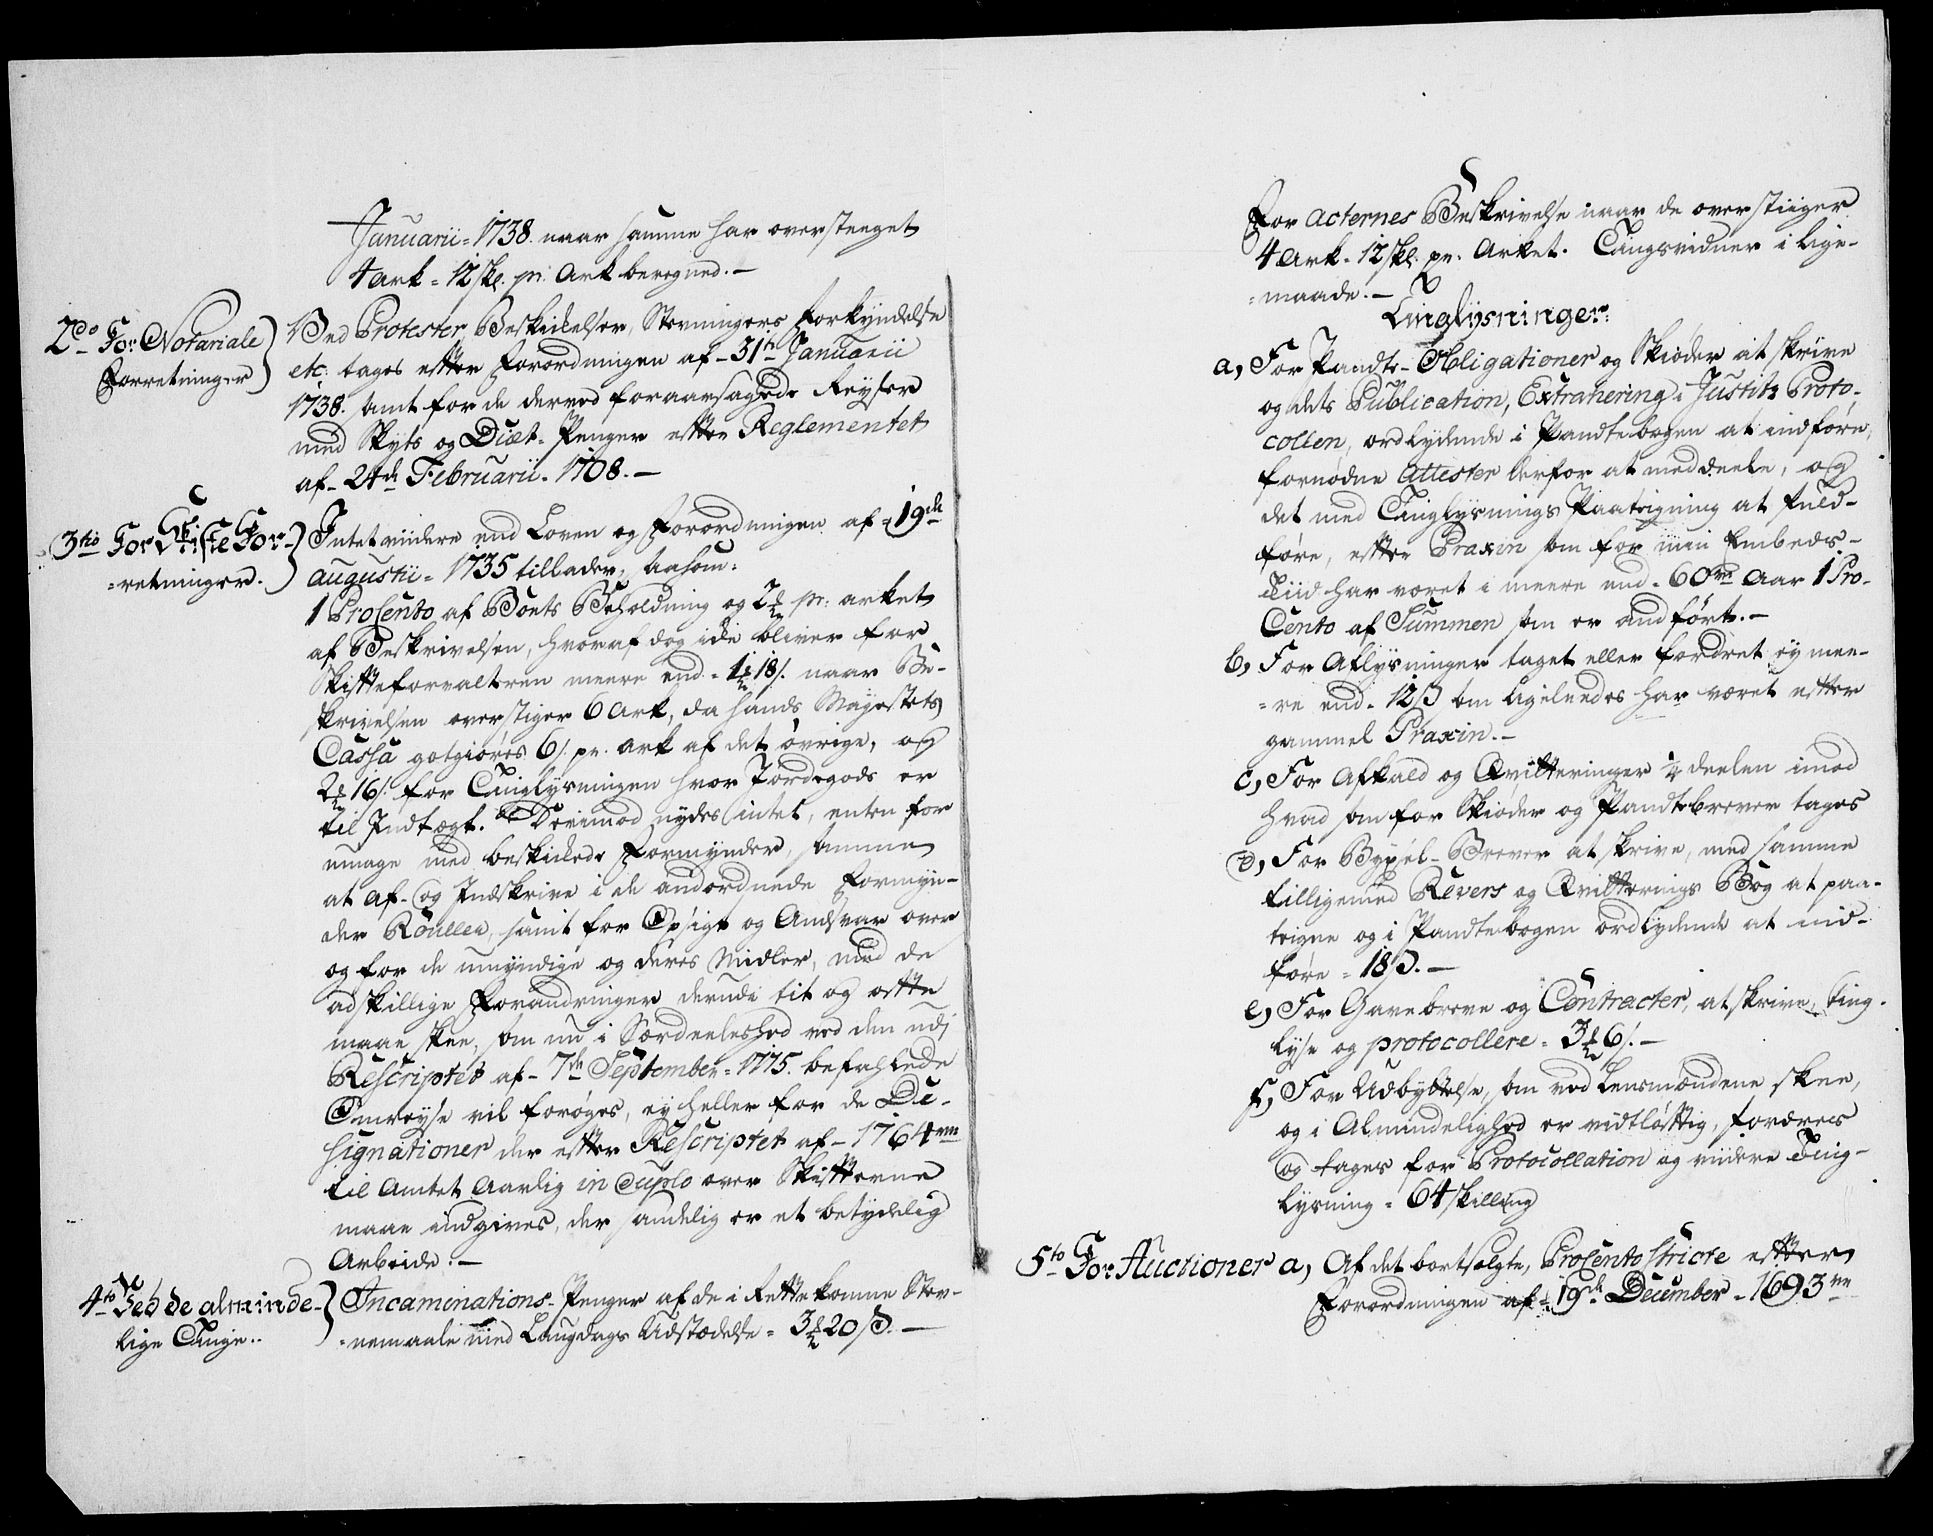 Januarii = 1738. naar samme har oversteeget
4 Ark = 12 skl. pr. Ark beregned. —
2do For Notariale
Forretninger
Ved Protester, Beskikelser, Stevningers Forkyndelse
etc: tages efter Forordningen af - 31te Januarii
1738. samt for de derved foraarsagede Reyser
med Skyts og Diæt-Penger efter Reglementet
af - 24de Februarii - 1708. —
3tio For Skifte For-
=retninger.
Intet viidere end Loven og Forordningen af - 19de
Augustii = 1735 tillader, saasom:
1 ProCento af Boets Beholdning og 2 pr: arket
af Beskrivelsen, hvoraf dog icke bliver for
Skifteforvalteren meere end - 1 18 s. naar Be-
skrivelsen overstiger 6 Ark, da hands Mayestets
Cassa gotgiöres 6 s. pr. Ark af det øvrige, og
2 16 s. for Tinglysningen hvor Jordegods er
til Indtægt. Derimod nydes intet, enten for
umage med beskikede Formynder, samme
at af- og Indskrive i de anordnede Formyn-
der Roullen, samt for Opsigt og Andsvar over
og for de umyndige og deres Midler, med de
adskillige Forandringer derudi tit og ofte
maae skee, som nu i Særdeeleshed ved den udj
Rescriptet af - 7de September = 1775. befahlede
Omreyse vil forøges, ey heller for de De-
signationer der efter Rescriptet af - 1764 ve
til Amtet Aarlig in Duplo over Skifterne
maae indgives, der sandelig er et betydelig
Arbeide: —
4to Ved de alminde-
lige Tinge..
Incaminations-Penger af de i Rette komne Stev-
=nemaale med Laugdags Udstædelse = 3 20 s. —
For Acternes Beskrivelse naar de overstiiger
4 Ark - 12 skl. pr. Arket. Tingsvidner i lige-
=maade. —
Tinglysninger:
a, For Pandte-Obligationer og Skiøder at skrive
og dets Publication, Extrahering i Justitz Proto-
collen, ordlydende i Pandtebogen at indføre,
fornødne Attester derfor at meddeele, og
det med Tinglysnings Paategning at fuld-
føre, efter Praxin som før min Embeds-
Tiid har været i meere end - 60 Aar 1 Pro-
Cento af Summen som er andført. —
b, For Aflysninger taget eller fordret ey mee-
=re end - 12 s som ligeledes har været efter
gammel Praxin. —
c, For Afkald og Qvitteringer ¼ deelen imod
hvad som for Skiøder og Pandtebrever tages
d, For Bygsel-Brever at skrive, med samme
tilligemed Revers og Qvitterings Bog at paa-
teigne og i Pandtebogen ordlydende at ind-
føre = 18 s. —
e, For Gavebreve og Contracter, at skrive, ting-
lyse og protocollere - 3 6 s. —
f, For Udbyttelse, som ved Lensmændene skee,
og i Almindelighed er vidtløftig, fordres
og tages for Protocollation og viidere Ting-
lysning - 64 skilling
5to For Auctioner a, Af det bortsolgte, ProCento stricte efter
Forordningen af - 19de December - 1693 ve